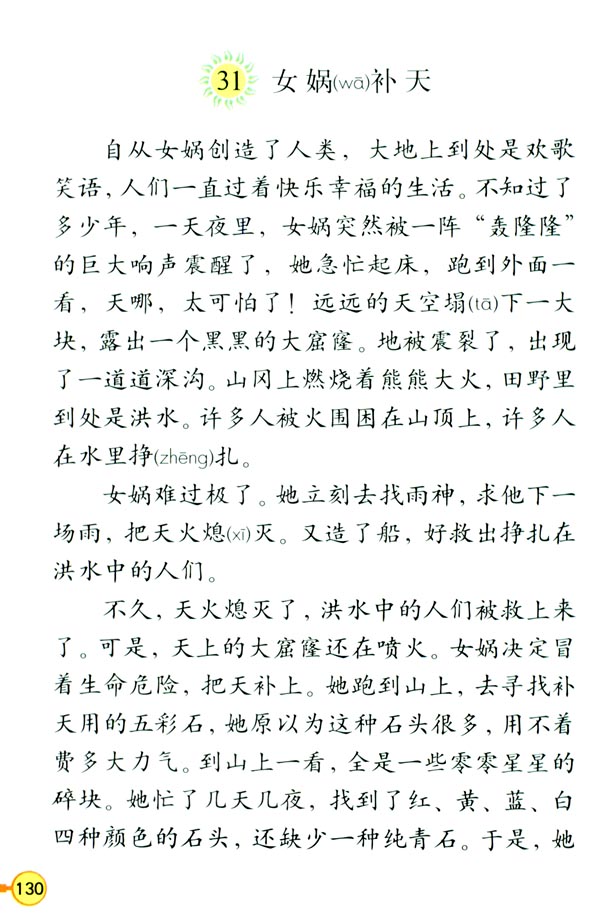 31 女娲(wā)补天
自从女娲创造了人类，大地上到处是欢歌
笑语，人们一直过着快乐幸福的生活。不知过了
多少年，一天夜里，女娲突然被一阵“轰隆隆”
的巨大响声震醒了，她急忙起床，跑到外面一
看，天哪，太可怕了！远远的天空塌(tā)下一大
块，露出一个黑黑的大窟窿。地被震裂了，出现
了一道道深沟。山冈上燃烧着熊熊大火，田野里
到处是洪水。许多人被火围困在山顶上，许多人
在水里挣(zhēng)扎。
女娲难过极了。她立刻去找雨神，求他下一
场雨，把天火熄(xī)灭。又造了船，好救出挣扎在
洪水中的人们。
不久，天火熄灭了，洪水中的人们被救上来
了。可是，天上的大窟窿还在喷火。女娲决定冒
着生命危险，把天补上。她跑到山上，去寻找补
天用的五彩石，她原以为这种石头很多，用不着
费多大力气。到山上一看，全是一些零零星星的
碎块。她忙了几天几夜，找到了红、黄、蓝、白
四种颜色的石头，还缺少一种纯青石。于是，她
130